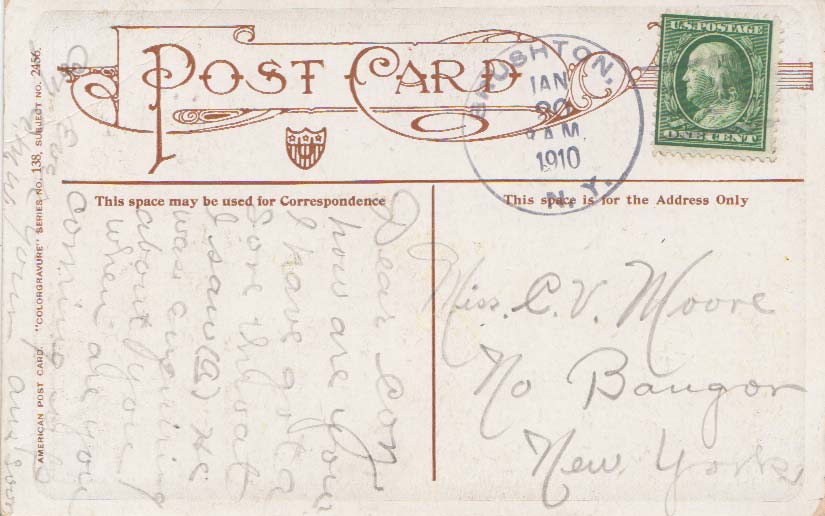 POST CARD
BRUSHTON,
JAN
20
AM
1910
N. Y.
U.S. POSTAGE
ONE CENT
This space may be used for Correspondence
This space is for the Address Only
Dear Con
how are you
I have got a
Sore throat
I saw (G) He
was enquiring
about you
when are you
coming
Miss. C. V. Moore
No Bangor
New York,
AMERICAN POST CARD. "COLORGRAVURE" SERIES NO. 138, SUBJECT NO. 2456.